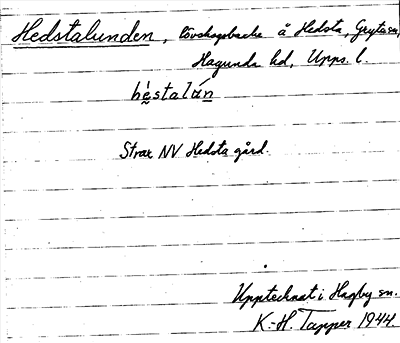 Hedstalunden, lövskogsbacke å Hedsta, Gryta sn,
Hagunda hd, Upps. l.
hèstalán
Strax NV Hedsta gård.
Upptecknat i Hagby sn.
K.-H. Tapper 1944.